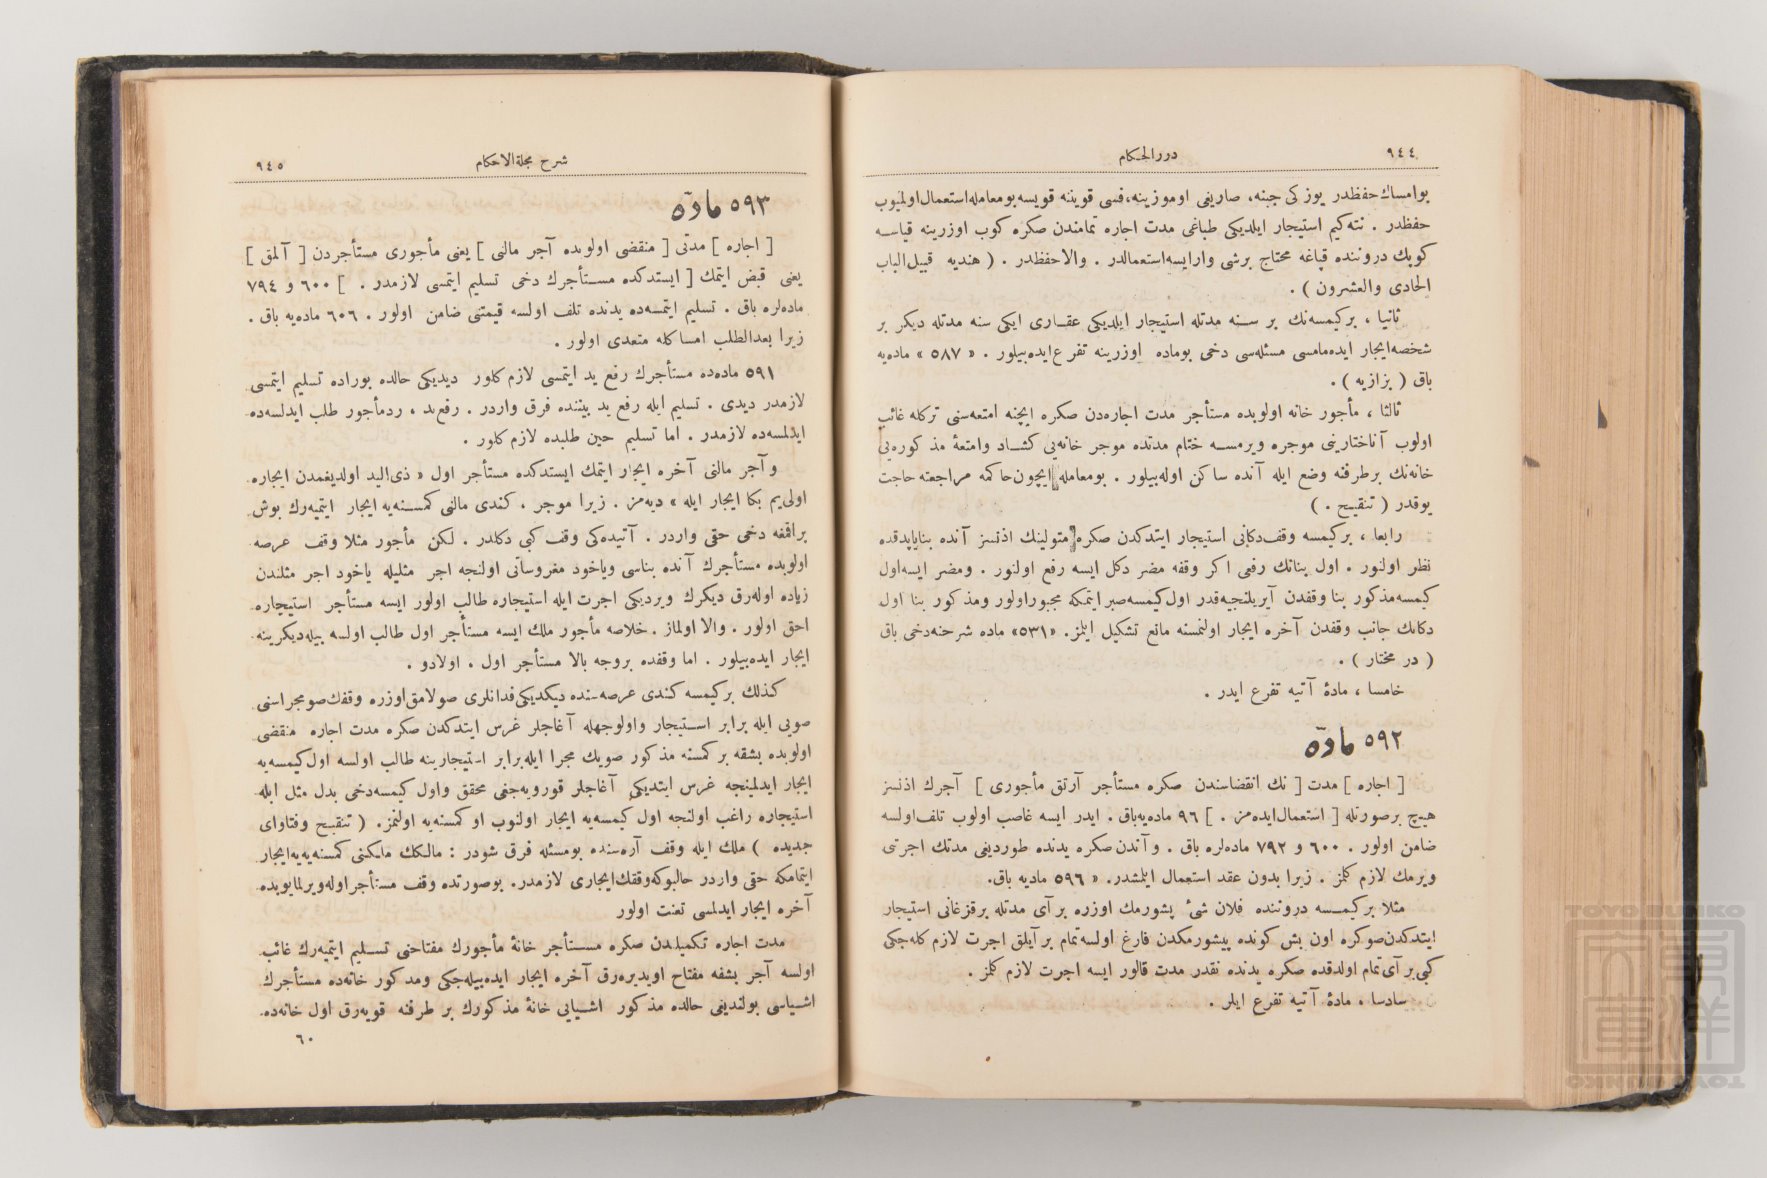 ٩٤٤
دررالحكام
بوامساك حفظدر يوزكى جبنه، صاريغى اوموزينه، فسى قويننه قويسه بومعامله استعمال اولميوب
حفظدر . نته كيم استيجار ايلديكى طباغى مدت اجاره تمامندن صكره كوب اوزرينه قياسه
كوپك دروننده قپاغه محتاج برشى وارايسه استعمالدر . والاحفظدر . ( هنديه قبيل الباب
الحادى والعشرون ) .
ثانيا ، بركيمسه نك بر سنه مدتله استيجار ايلديكى عقارى ايكى سنه مدتله ديكر بر
شخصه ايجار ايده مامسى مسئله سى دخى بوماده اوزرينه تفرع ايده بيلور . « ٥٨٧ » ماده يه
باق ( بزازيه ) .
ثالثا ، مأجور خانه اولوبده مستأجر مدت اجاره دن صكره ايچنه امتعه سنى تركله غائب
اولوب آناختارينى موجره ويرمسه ختام مدتده موجر خانه يى كشاد وامتعۀ مذكوره يى
خانه نك برطرفنه وضع ايله آنده ساكن اوله بيلور . بومعامله ايچون حاكمه مراجعته حاجت
يوقدر ( تنقيح . )
رابعا ، بركيمسه وقف دكانى استيجار ايتدكدن صكره متولينك اذنسز آنده بناياپدقده
نظر اولنور . اول بنانك رفعى اكر وقفه مضر دكل ايسه رفع اولنور . ومضر ايسه اول
كيمسه مذكور بنا وقفدن آيريلنجيه قدر اول كيمسه صبر ايتمكه مجبور اولور ومذكور بنا اول
دكانك جانب وقفدن آخره ايجار اولنمسنه مانع تشكيل ايلمز. «٥٣١» ماده شرحنه دخى باق
( در مختار ) .
خامسا ، مادۀ آتيه تفرع ايدر .
٥٩٢ ماده
[ اجاره ] مدت [ نك انقضاسندن صكره مستأجر آرتق مأجورى ] آجرك اذنسز
هيچ برصورتله [ استعمال ايده مز . ] ٩٦ ماده يه باق . ايدر ايسه غاصب اولوب تلف اولسه
ضامن اولور . ٦٠٠ و ٧٩٢ ماده لره باق . وآندن صكره يدنده طورديغى مدتك اجرتى
ويرمك لازم كلز . زيرا بدون عقد استعمال ايلمشدر. « ٥٩٦ ماديه باق.
مثلا بركيمسه دروننده فلان شئ پشورمك اوزره بر آى مدتله برقزغانى استيجار
ايتدكدن صوكره اون بش كونده پيشورمكدن فارغ اولسه تمام بر آيلق اجرت لازم كله جكى
كبى بر آى تمام اولدقده صكره يدنده نقدر مدت قالور ايسه اجرت لازم كلز .
سادسا ، مادۀ آتيه تفرع ايلر .
شرح مجلة الاحكام
٩٤٥
٥٩٣ ماده
[ اجاره ] مدتى [ منقضى اولوبده آجر مالنى ] يعنى مأجورى مستأجردن [ آلمق ]
يعنى قبض ايتمك [ ايستدكده مستأجرك دخى تسليم ايتمسى لازمدر . ] ٦٠٠ و ٧٩٤
ماده لره باق . تسليم ايتمسه ده يدنده تلف اولسه قيمتنى ضامن اولور . ٦٠٦ ماده يه باق .
زيرا بعدالطلب امساكله متعدى اولور .
٥٩١ ماده ده مستأجرك رفع يد ايتمسى لازم كلور ديديكى حالده بوراده تسليم ايتمسى
لازمدر ديدى . تسليم ايله رفع يد بيننده فرق واردر . رفع يد ، ردمأجور طلب ايدلسه ده
ايدلمسه ده لازمدر . اما تسليم حين طلبده لازم كلور .
و آجر مالنى آخره ايجار ايتمك ايستدكده مستأجر اول « ذى اليد اولديغمدن ايجاره
اولى يم بكا ايجار ايله » ديه مز . زيرا موجر ، كندى مالنى كمسنه يه ايجار ايتميه رك بوش
براقمغه دخى حقى واردر . آتيده كى وقف كبى دكلدر . لكن مأجور مثلا وقف عرصه
اولوبده مستأجرك آنده بناسى وياخود مغروساتى اولنجه اجر مثليله ياخود اجر مثلندن
زياده اوله رق ديكرك ويرديكى اجرت ايله استيجاره طالب اولور ايسه مستأجر استيجاره
احق اولور . والا اولماز . خلاصه مأجور ملك ايسه مستأجر اول طالب اولسه بيله ديكرينه
ايجار ايده بيلور . اما وقفده بروجه بالا مستأجر اول ، اولادو .
كذلك بركيمسه كندى عرصه سنده ديكديكى فدانلرى صولامق اوزره وقفك صومجراسنى
صويى ايله برابر استيجار واولوجهله آغاجلر غرس ايتدكدن صكره مدت اجاره منقضى
اولوبده بشقه بركمسنه مذكور صويك مجرا ايله برابر استيجارينه طالب اولسه اول كيمسه يه
ايجار ايدلمينجه غرس ايتديكى آغاجلر قورويه جغى محقق واول كيمسه دخى بدل مثل ايله
استيجاره راغب اولنجه اول كيمسه يه ايجار اولنوب او كمسنه يه اولنمز. ( تنقيح وفتاواى
جديده ) ملك ايله وقف آره سنده بومسئله فرق شودر : مالكك ملكنى كمسنه يه ايجار
ايتمامكه حقى واردر حالبوكه وقفك ايجارى لازمدر. بوصورتده وقف مستأجر اوله ويرلمايوبده
آخره ايجار ايدلمسى تعنت اولور
مدت اجاره تكميلندن صكره مستأجر خانۀ مأجورك مفتاحنى تسليم ايتميه رك غائب
اولسه آجر بشقه مفتاح اويديره رق آخره ايجار ايده بيله جكى ومذكور خانه ده مستأجرك
اشياسى بولنديغى حالده مذكور اشيايى خانۀ مذكورك بر طرفنه قويه رق اول خانه ده
٦٠
TOYO BUNKO
TOYO BUNKO